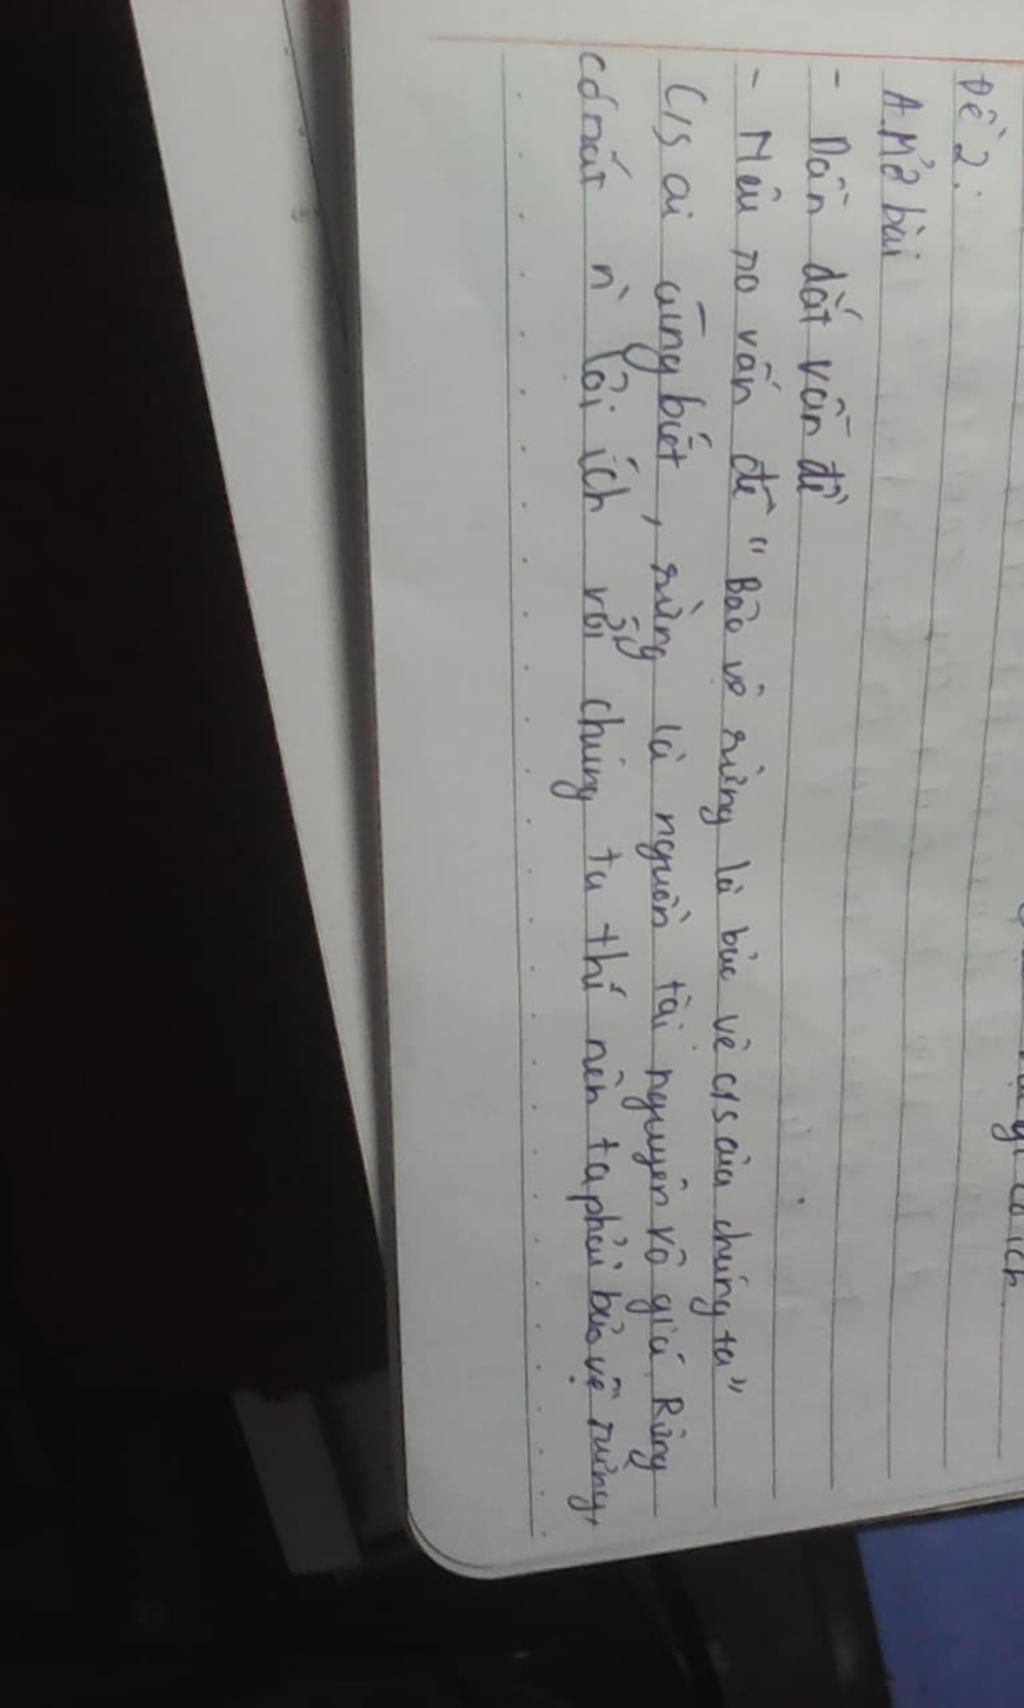 có ích
Đề 2:
A. Mở bài
- Dẫn dắt vấn đề
- Nêu ra vấn đề "Bảo vệ rừng là bảo vệ c/s của chúng ta"
C/s ai cũng biết, rừng là nguồn tài nguyên vô giá. Rừng
có rất n` lợi ích với chúng ta thế nên ta phải bảo vệ rừng,